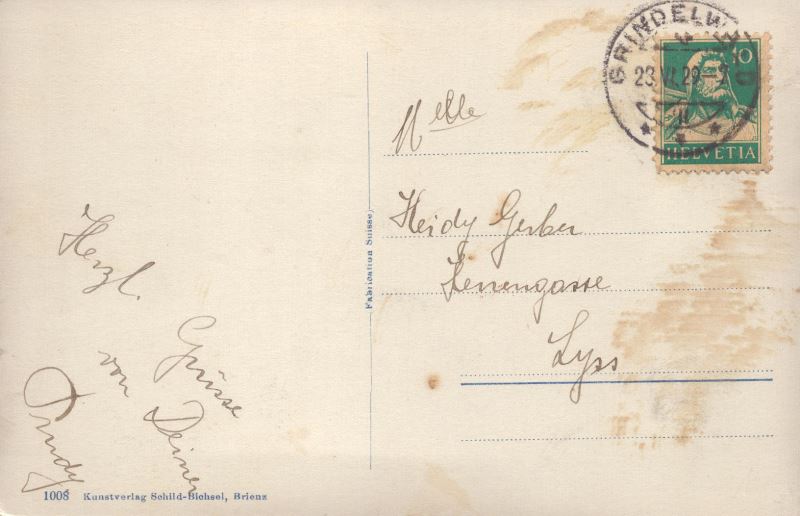 GRINDELWALD
23.VI.29-
10
HELVETIA
Melle
Heidy Gerber
Lyss
Herzl.
Grüsse
von Deiner
Trudy
Fabrication Suisse.
1008 Kunstverlag Schild-Bichsel, Brienz